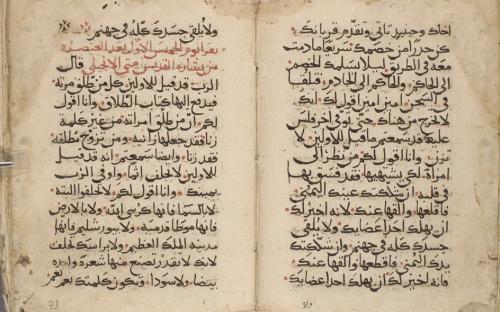 اخاك وحينيد تاتي وتقدم قربانك
كن حذرا من خصمك سريعا ما دمت
معه في الطريق ليلا يسلمك الخصم
الى الحاكم والحاكم الى فتلقا
في السجن امين امين اقول لك انك
لا تخرج من هناك حتى توفي اخر فلس
عليك قد سمعتم ما قيل للاولين لا
تزن وانا اقول لكم من نظر الى
امراة لكي يشتهيها فقد فسق بها
في قلبه ان شككتك عينك اليمنى
فاقلعها والقها عنك لانه اخير لك
ان يهلك احد اعضايك ولا يلقى
جسدك كله في جهنم وان شككتك
يدك اليمنى فاقطعها والقها عنك
فانه اخير لك ان يهلك احد اعضايك
ولا يلقى جسدك كله في جهنم
يقرا يوم الخميس الاول بعد العنصره
من بشاره القديس متى الانجيلي قال
الرب قد قيل للاولين كل من طلق مرته
فيدفع اليها كتاب الطلاق وانا اقول
لكم ان من طلق امراته من غير كلمة
زنا فقد جعلها زانيه ومن تزوج مطلقه
فقد زنا وايضا سمعتم انه قد قيل
للاولين لا تحلف اثما واوفي الرب
يمينك وانا اقول لكم لا تحلفوا البته
لا بالسما فانها كرسي الله ولا بالارض
فانها موطا قدميه ولا بيورشليم فانها
مدينة الملك العظيم ولا براسك تحلف
لانك لا تقدر تصنع منها شعرة واحده
بيضا ولا سودا وتكون كلمتك نعم نعم
73